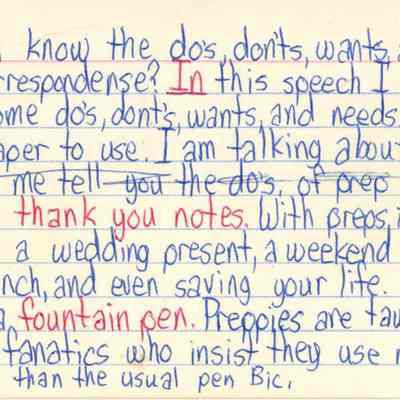 know the do's, don'ts, wants,
rrespondense? In this speech I
ome do's, dont's, wants, and needs
aper to use. I am talking abou
me tell you the do's, of prep
thank you notes. With preps,
a wedding present, a weekend
nch, and even saving your life.
fountain pen. Preppies are tau
fanatics who insist they use
than the usual pen Bic.